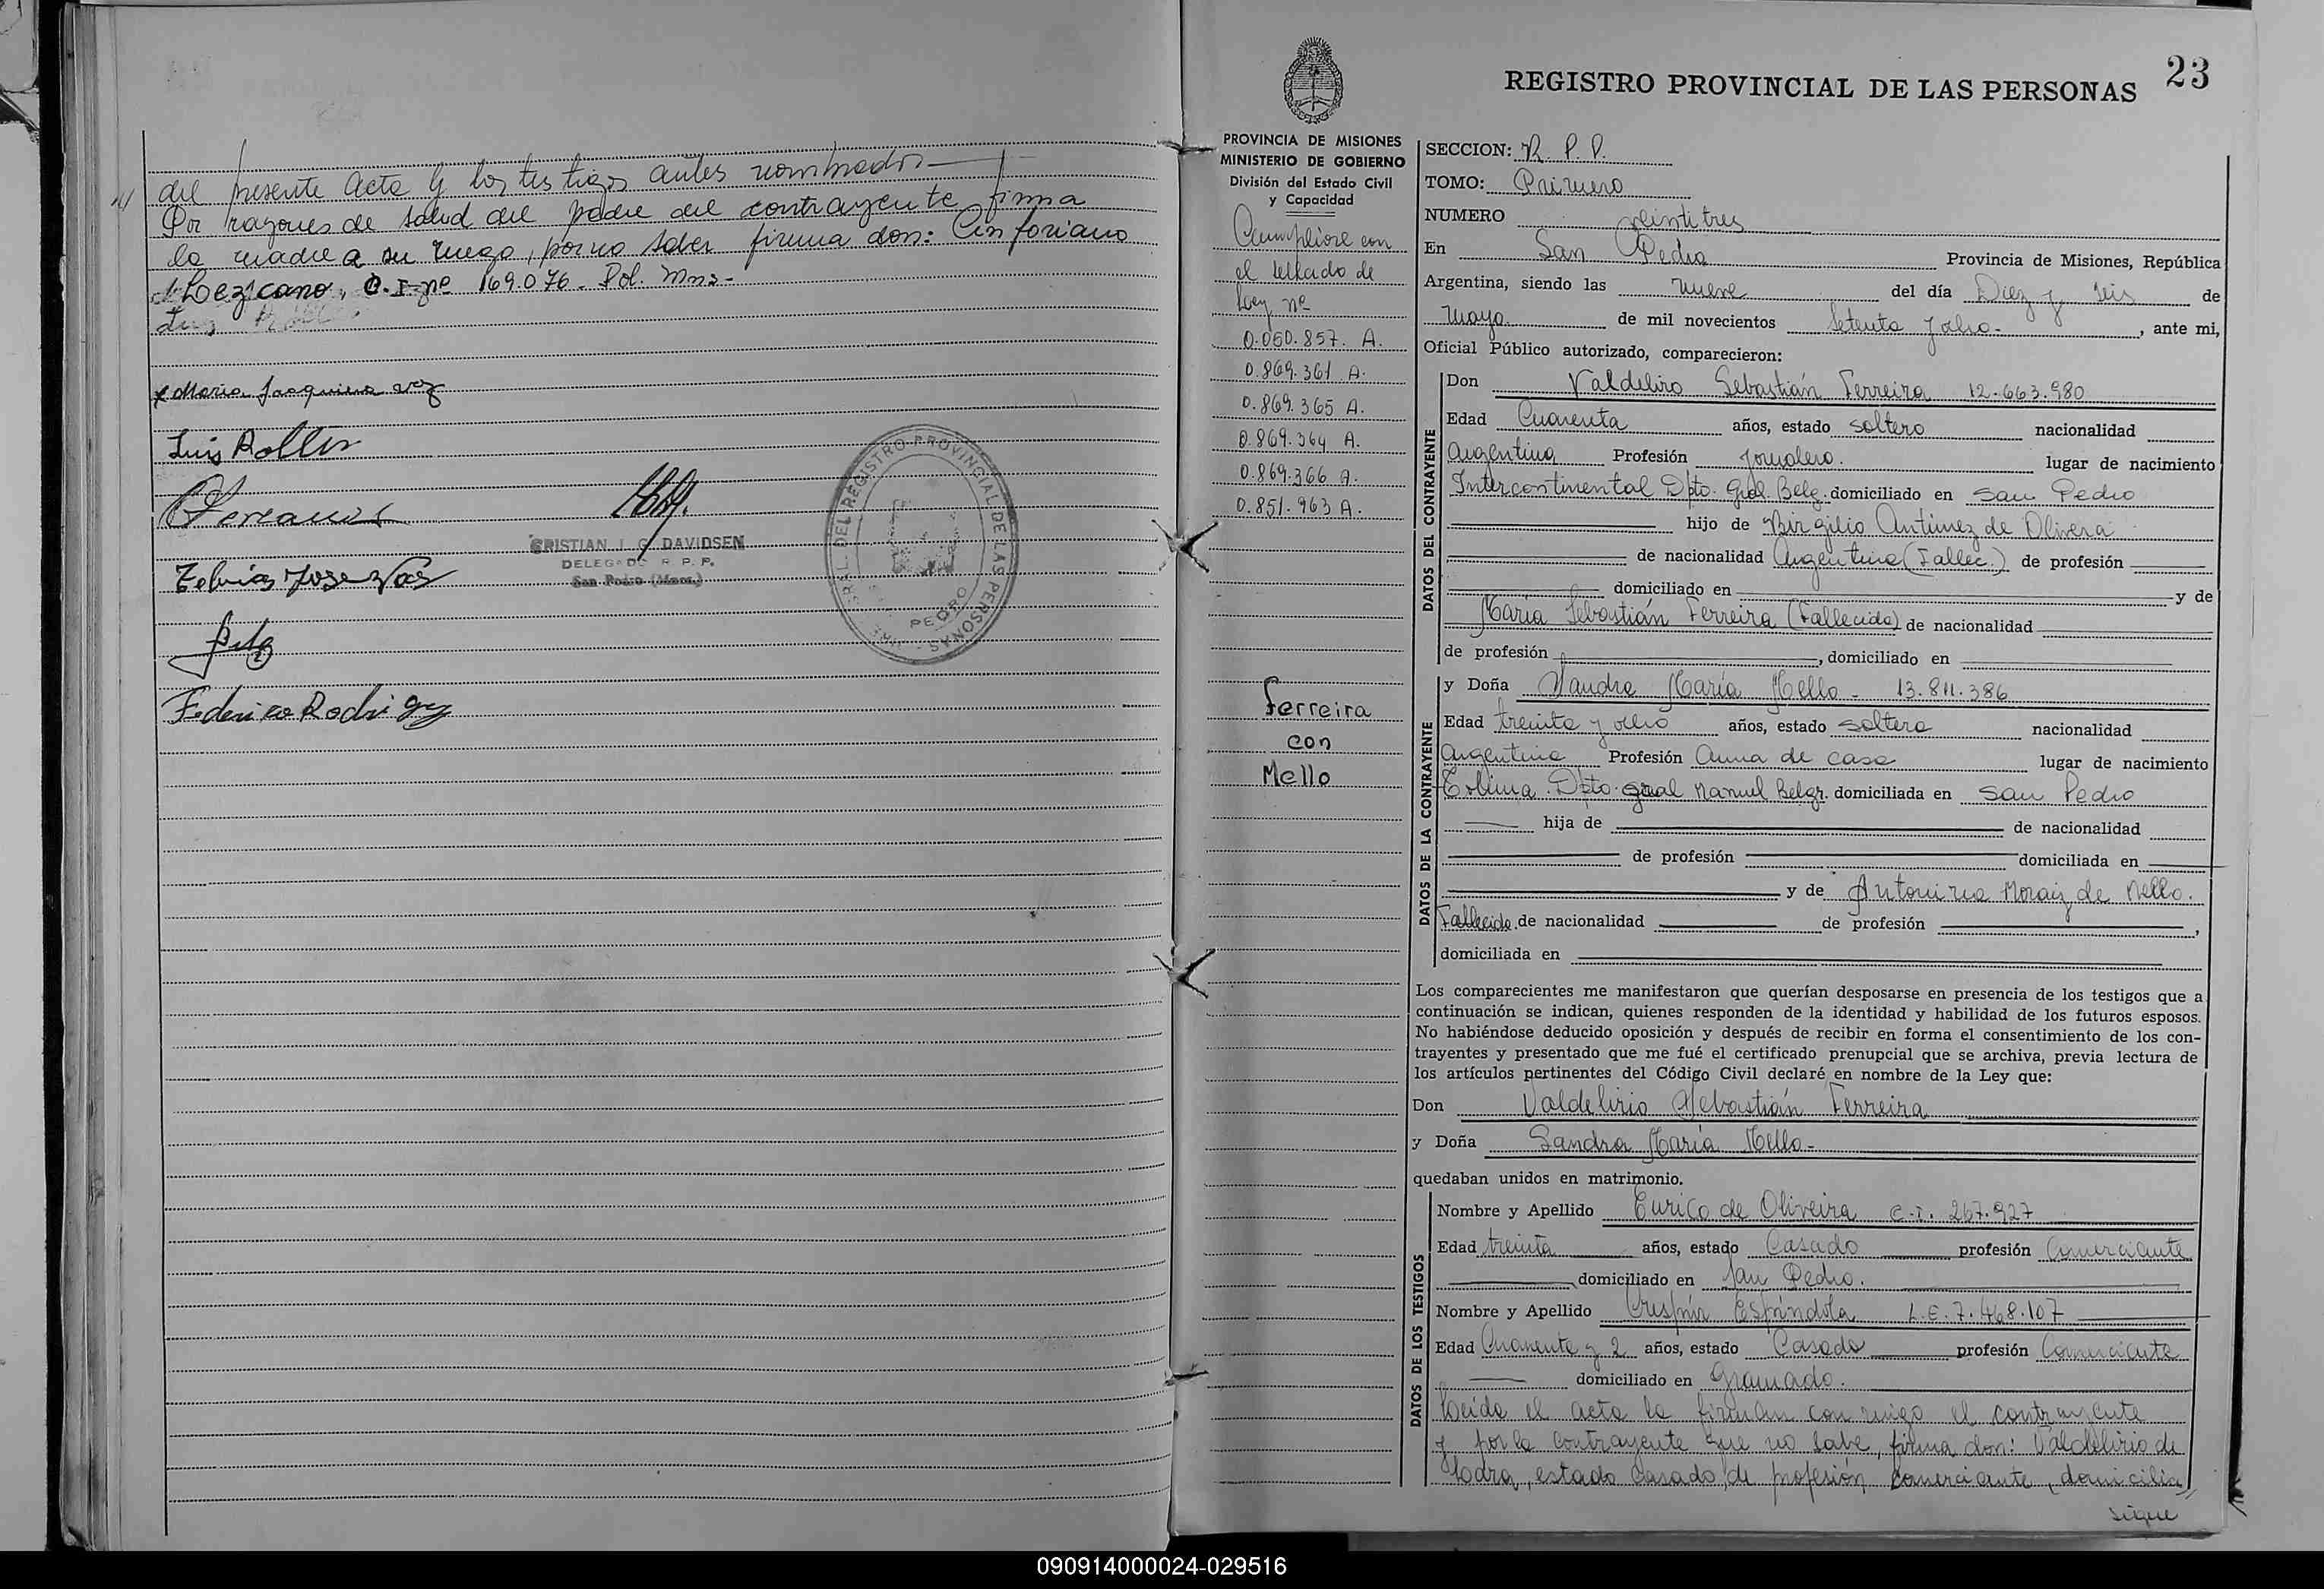 del presente Acta y los testigos antes nombrados
Por razones de salud del padre del contrayente firma
la madre a su ruego, por no saber firma don: Cinforiano
Lezcano, C.I. nº 169.076. Pol. Mns-
Maria Joaquina
Luis
Tobias Jose Vas
Federico Rodri
CRISTIAN G. DAVIDSEN
DELEGADO R. P. P.
San Pedro (Mnes.)
DEL REGISTRO PROVINCIAL DE LAS PERSONAS
PEDRO
REGISTRO PROVINCIAL DE LAS PERSONAS 23
PROVINCIA DE MISIONES
MINISTERIO DE GOBIERNO
División del Estado Civil
y Capacidad
Cumpliose con
el sellado de
Ley nº
0.050.857. A.
0.869.361 A.
0.869.365 A.
0.869.364 A.
0.869.366 A.
0.851.963 A.
Ferreira
con
Mello
SECCION: R. P. P.
TOMO: Primero
NUMERO veintitres
En San Pedro Provincia de Misiones, República
Argentina, siendo las nueve del día Diez y seis de
Mayo de mil novecientos Setenta y ocho-, ante mi,
Oficial Público autorizado, comparecieron:
DATOS DEL CONTRAYENTE
Don Valdelirio Sebastián Ferreira 12.663.980
Edad Cuarenta años, estado soltero nacionalidad
Argentina Profesión Jornalero. lugar de nacimiento
Intercontinental Dpto. Gral. Belg. domiciliado en San Pedro
hijo de Birgilio Antunez de Olivera
de nacionalidad Argentina (Fallec.) de profesión
domiciliado en y de
María Sebastián Ferreira (Fallecida) de nacionalidad
de profesión , domiciliado en
DATOS DE LA CONTRAYENTE
y Doña Sandra María Mello - 13.811.386
Edad treinta y ocho años, estado soltera nacionalidad
Argentina Profesión Ama de casa lugar de nacimiento
Dpto. Gral Manuel Belgr. domiciliada en San Pedro
hija de de nacionalidad
de profesión domiciliada en
y de Antonina Moraiz de Mello.
Fallecida. de nacionalidad de profesión ,
domiciliada en
Los comparecientes me manifestaron que querían desposarse en presencia de los testigos que a
continuación se indican, quienes responden de la identidad y habilidad de los futuros esposos.
No habiéndose deducido oposición y después de recibir en forma el consentimiento de los con-
trayentes y presentado que me fué el certificado prenupcial que se archiva, previa lectura de
los artículos pertinentes del Código Civil declaré en nombre de la Ley que:
Don Valdelirio Sebastián Ferreira
y Doña Sandra María Mello-
quedaban unidos en matrimonio.
DATOS DE LOS TESTIGOS
Nombre y Apellido Eurico de Oliveira C.I. 267.927
Edad treinta años, estado Casado profesión Comerciante
domiciliado en San Pedro.
Nombre y Apellido Crispin Espíndola L.E. 7.468.107
Edad Cuarenta y 2 años, estado Casado profesión Comerciante
domiciliado en Gramado.
Leida el acta la firman conmigo el contrayente
y por la contrayente que no sabe, firma don: Valdelirio de
estado Casado, de profesión, comerciante, domicilia
sigue
090914000024-029516